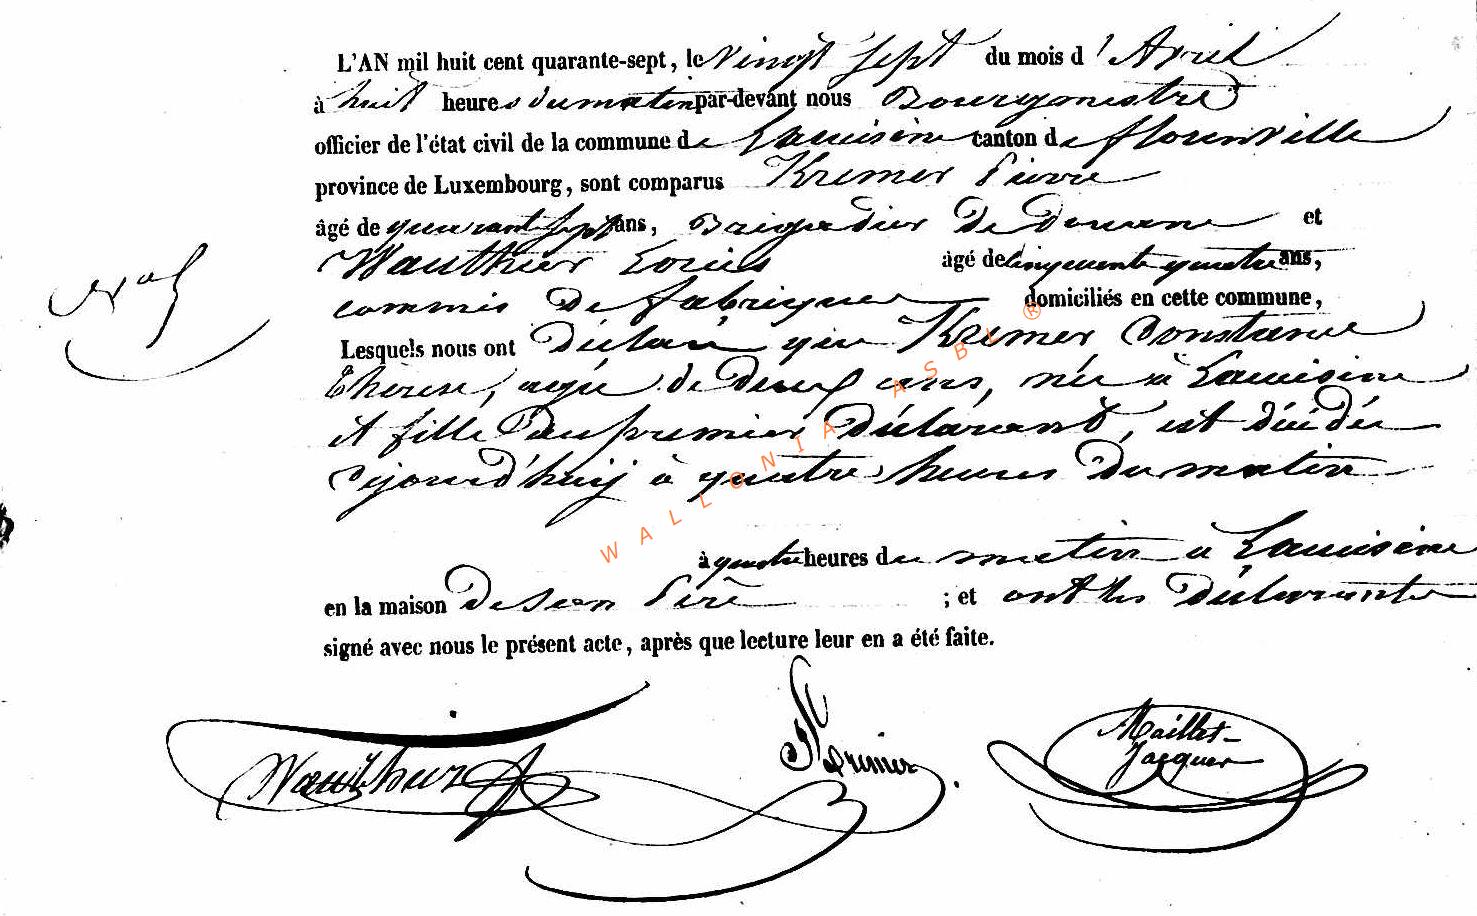 L'AN mil huit cent quarante-sept, le Vingt Sept du mois d'Avril
à huit heures du matin par-devant nous Bourgmestre
officier de l'état civil de la commune de Lacuisine canton de Florenville
province de Luxembourg, sont comparus Kremer Pierre
âgé de quarant Sept ans, Brigadier de Douane et
Wauthier Louis âgé de Cinquante quatre ans,
commis de fabrique domiciliés en cette commune,
N° 5
Lesquels nous ont Déclaré que Kremer Constance
Thérese, agée de deux ans, née à Lacuisine
et fille du premier Déclarant, est décédée
cejourd'huij à quatre heures du matin
à quatre heures du matin à Lacuisine
en la maison De Son Père ; et ont les Déclarants
signé avec nous le présent acte, après que lecture leur en a été faite.
Wauthier Kremer Maillet-
Jacques
WALLONIA ASBL ®